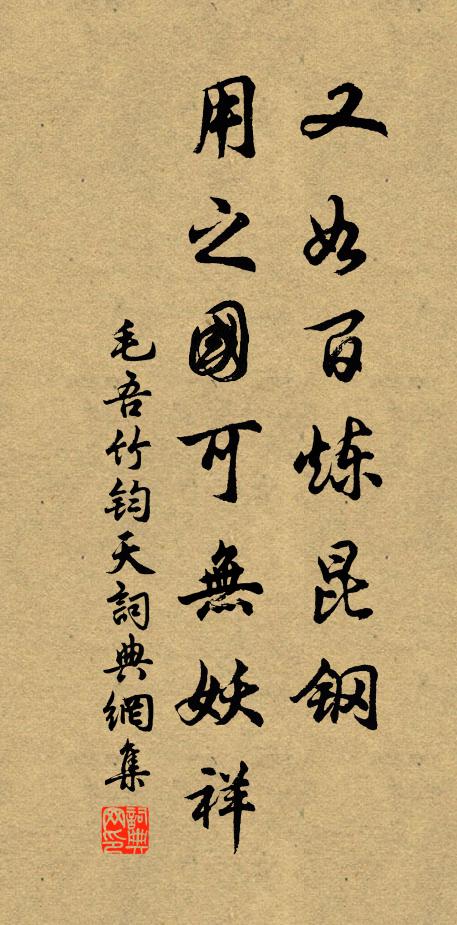 又如百炼昆钢
用之國可無妖祥
毛吾竹钧天詞典網集
詞典网印